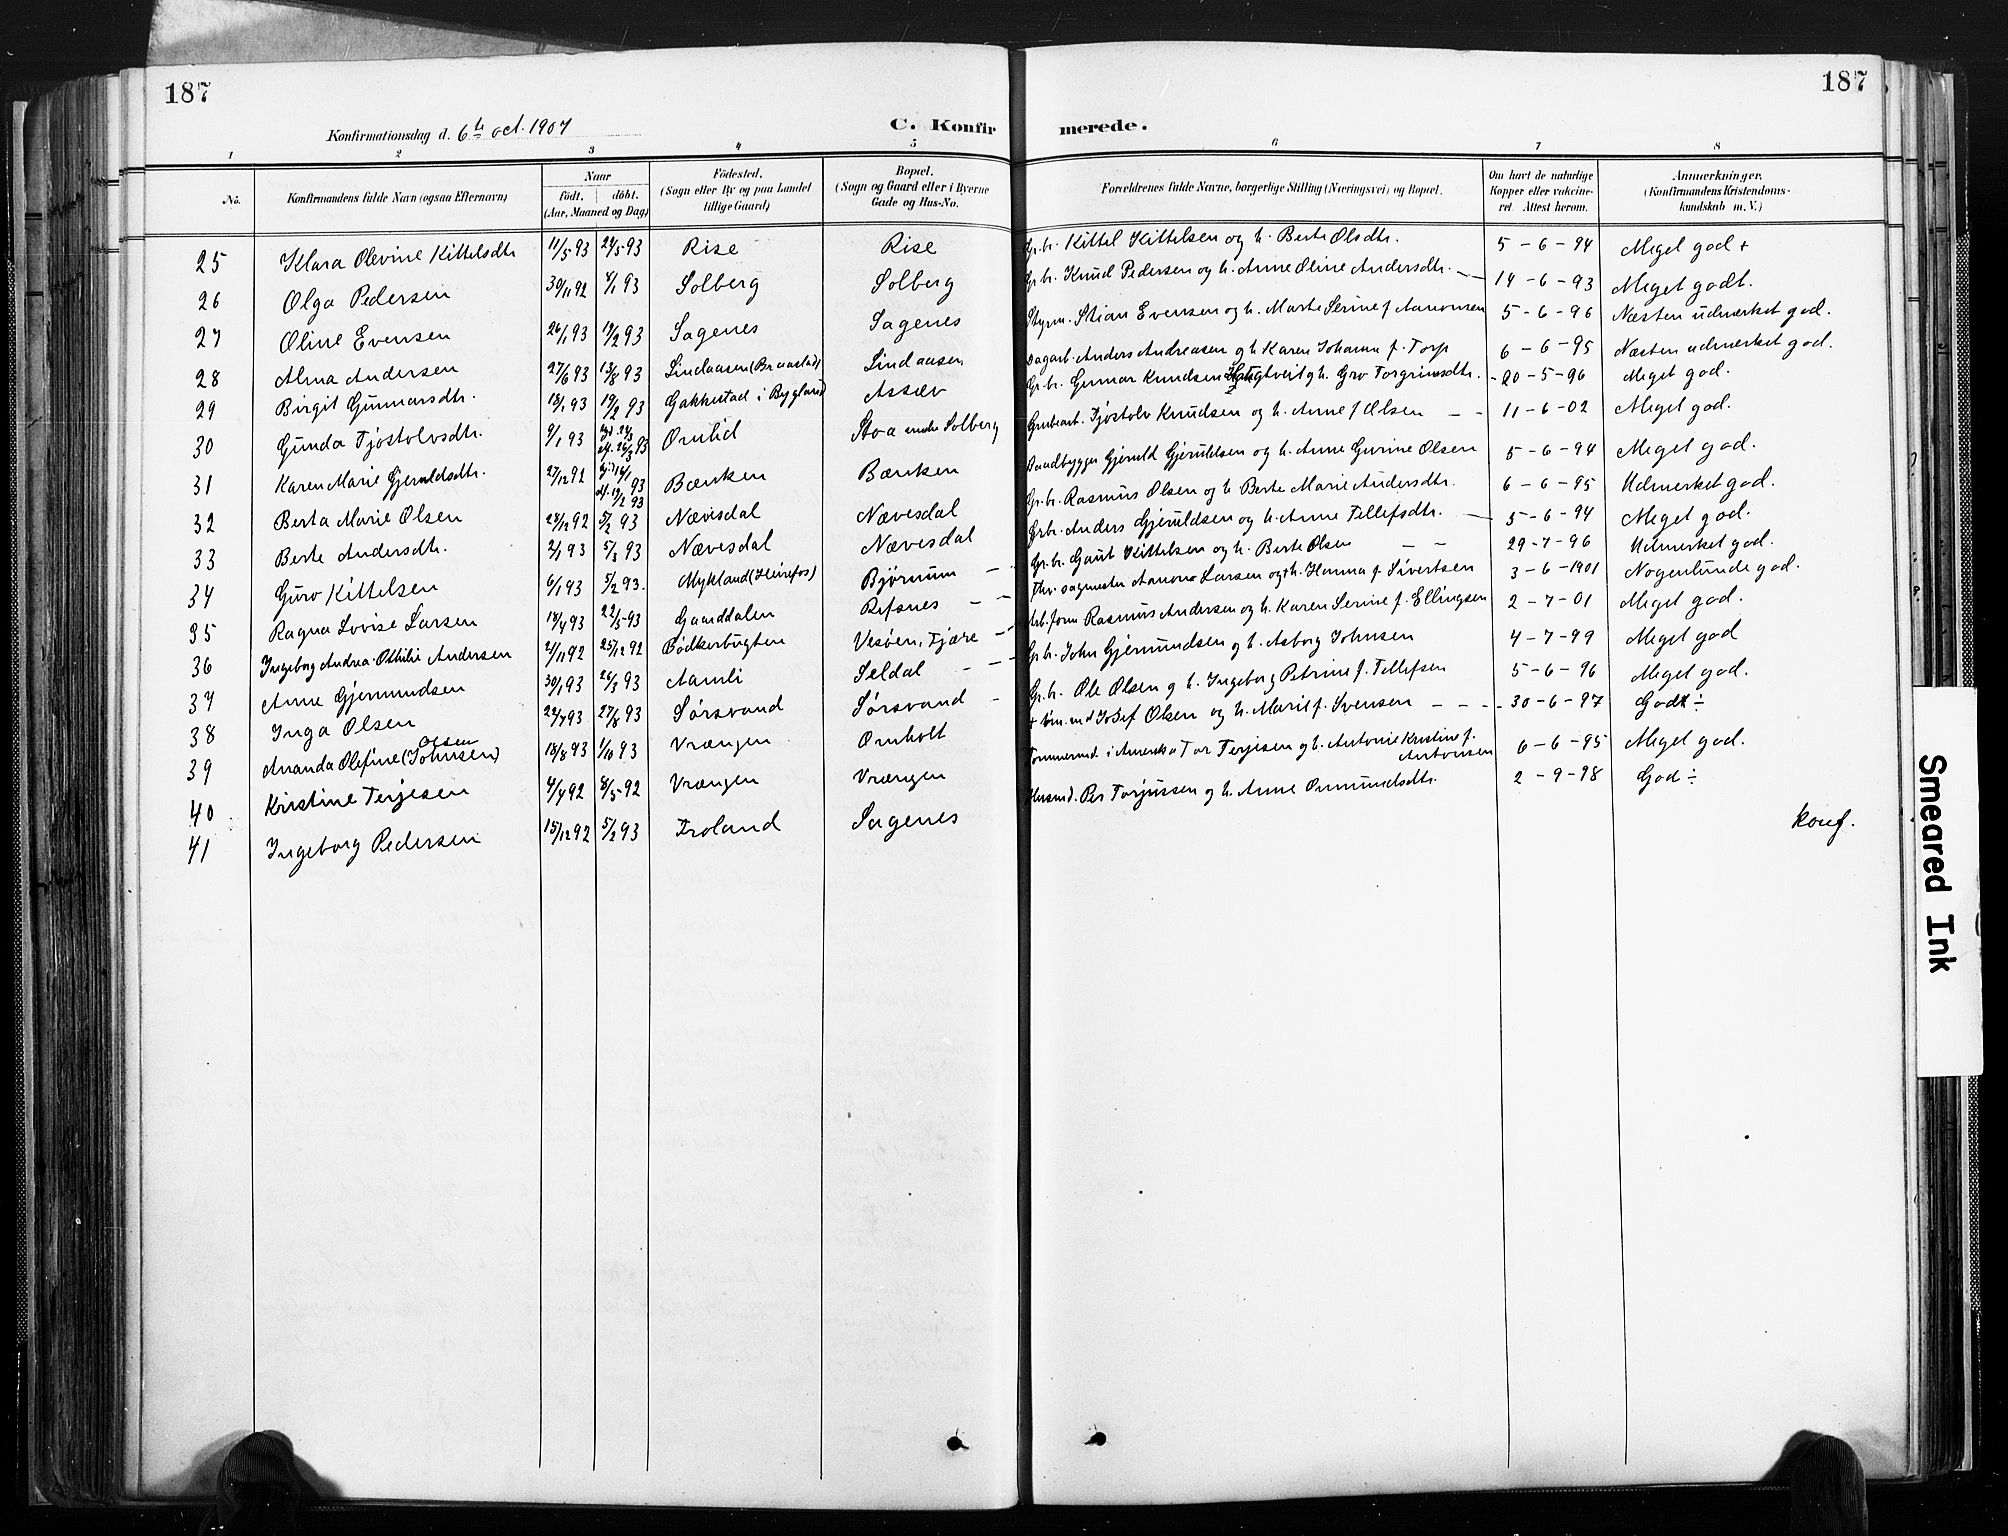 187
187
Konfirmationsdag d. 6te oct. 1907
C. Konfir
merede.
1 2 3 4 5 6 7 8
No. Konfirmandens fulde Navn (ogsaa Efternavn) Naar födt. döbt. (Aar, Maaned og Dag) Födested. (Sogn eller By og paa Landet tillige Gaard) Bopæl. (Sogn og Gaard eller i Byerne Gade og Hus-No. Forældrenes fulde Navne, borgerlige Stilling (Næringsvei) og Bopæl. Om havt de naturlige Kopper eller vakcineret. Attest herom. Anmærkninger. (Konfirmandens Kristendomskundskab m. V.)
25 Klara Olevine Kittelsdtr 11/5 93 24/5 93 Rise Rise Gr.br. Kittel Kittelsen og h. Berte Olsdtr. 5-6-94 Meget god +
26 Olga Pedersen 30/11 92 8/1 93 Solberg Solberg Gr.br. Knud Pedersen og h. Anne Oline Andersdtr. 14-6-93 Meget godt.
27 Oline Evensen 26/1 93 19/2 93 Sagenes Sagenes Styrm. Stian Evensen og h. Marte Serine f. Aanonsen 5-6-96 Næsten udmerket god.
28 Alma Andersen 27/6 93 13/8 93 Lindaasen (Braastad) Lindaasen Dagarb. Anders Andreasen og h. Karen Johanna f. Torp 6-6-95 Næsten udmerket god.
29 Birgit Gunnarsdtr. 18/1 93 19/2 93 Gakkestad i Bygland Assæv Gr.br. Gunnar Knudsen og h. Gro Torgrimsdtr. 20-5-96 Meget god.
30 Gunda Tjostolvsdtr. 9/1 93 Ørnlid Stoa under Solberg Grubearb. Tjostolv Knudsen og h. Anne f Olsen 11-6-02 Meget god.
31 Karen Marie Gjeruldsdtr. 27/12 92 Bænken Bænken Baadbygger Gjeruld Gjeruldsen og h. Anne Gurine Olsen 5-6-94 Meget god.
32 Berta Marie Olsen 28/12 92 5/2 93 Nævisdal Nævesdal Gr.br. Rasmus Olsen og h. Berte Marie Andersdtr. 6-6-95 Udmerket god.
33 Berte Andersdtr. 2/1 93 5/3 93 Nævesdal Nævesdal Grbr. Anders Gjeruldsen og h. Anne Tellefsdtr. 5-6-94 Meget god.
34 Guro Kittelsen 6/1 93 5/2 93. Mykland (Heirefos) Bjørnum Gr.br. Gaut Kittelsen og h. Berte Olsen 29-7-96 Udmerket god.
35 Ragna Lovise Larsen 18/4 93 22/5-93 Gaarddalen Refsnes Fhv. sagmester Aanon Larsen og h. Hanna f. Sivertsen 3-6-1901 Nogenlunde god.
36 Ingeborg Andrea Othilie Andersen 2/11 92 25/12 92 Bødkerbugten Vesøen, Fjære Arb.form Rasmus Andersen og h. Karen Serine f. Ellingsen 2-7-01 Meget god.
37 Anne Gjermundsen 30/1 93 26/3 93 Aamli Seldal Gr.br. John Gjermundsen og h. Asborg Johnsen 4-7-99 Meget god
38 Inga Olsen 22/7 93 27/8 93 Sørsvand Sørsvand Gr.br. Ole Olsen og h. Ingeborg Petrine f. Tellefsen 5-6-96 Meget god.
39 Ananda Olefine (Johnsen) Olsen 18/8 93 1/10 93 Vrængen Ørnholt + tøm.md Josef Olsen og h. Marit f. Svensen 30-6-97 Godt ÷
40 Kristine Terjesen 4/4 92 8/5-92 Vrængen Vrængen Tømmermd. i Amerika Tor Terjesen og h. Antonie Kristine f. Antonsen 6-6-95 Meget god.
41 Ingeborg Pedersen 15/12 92 5/2 93 Froland Sagenes Husmd. Per Torjussen og h. Anne Ormundsdtr. 2-9-98 God ÷
konf.
Smeared Ink